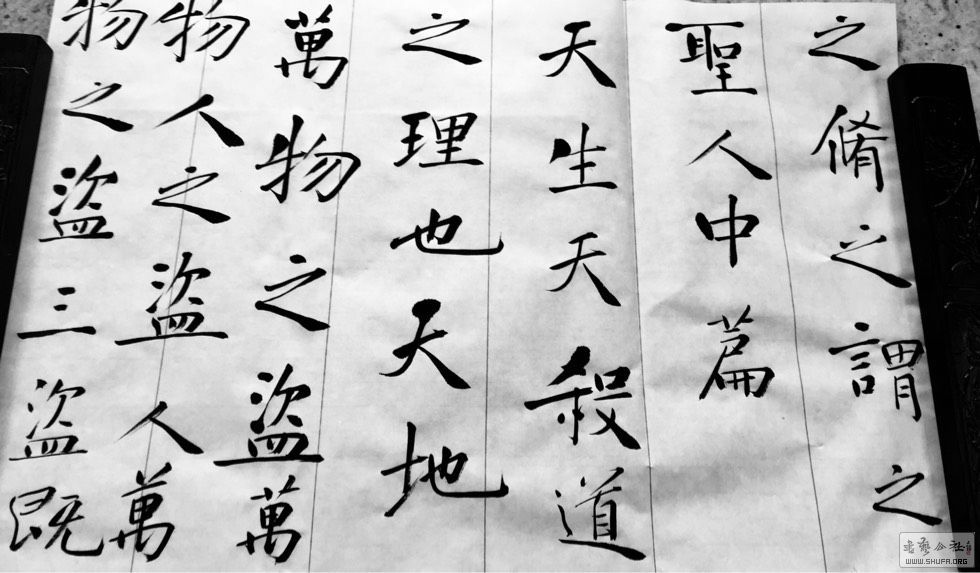 之脩之謂之
聖人中篇
天生天殺道
之理也天地
萬物之盜萬
物人之盜人萬
物之盜三盜既
WWW.SHUFA.ORG